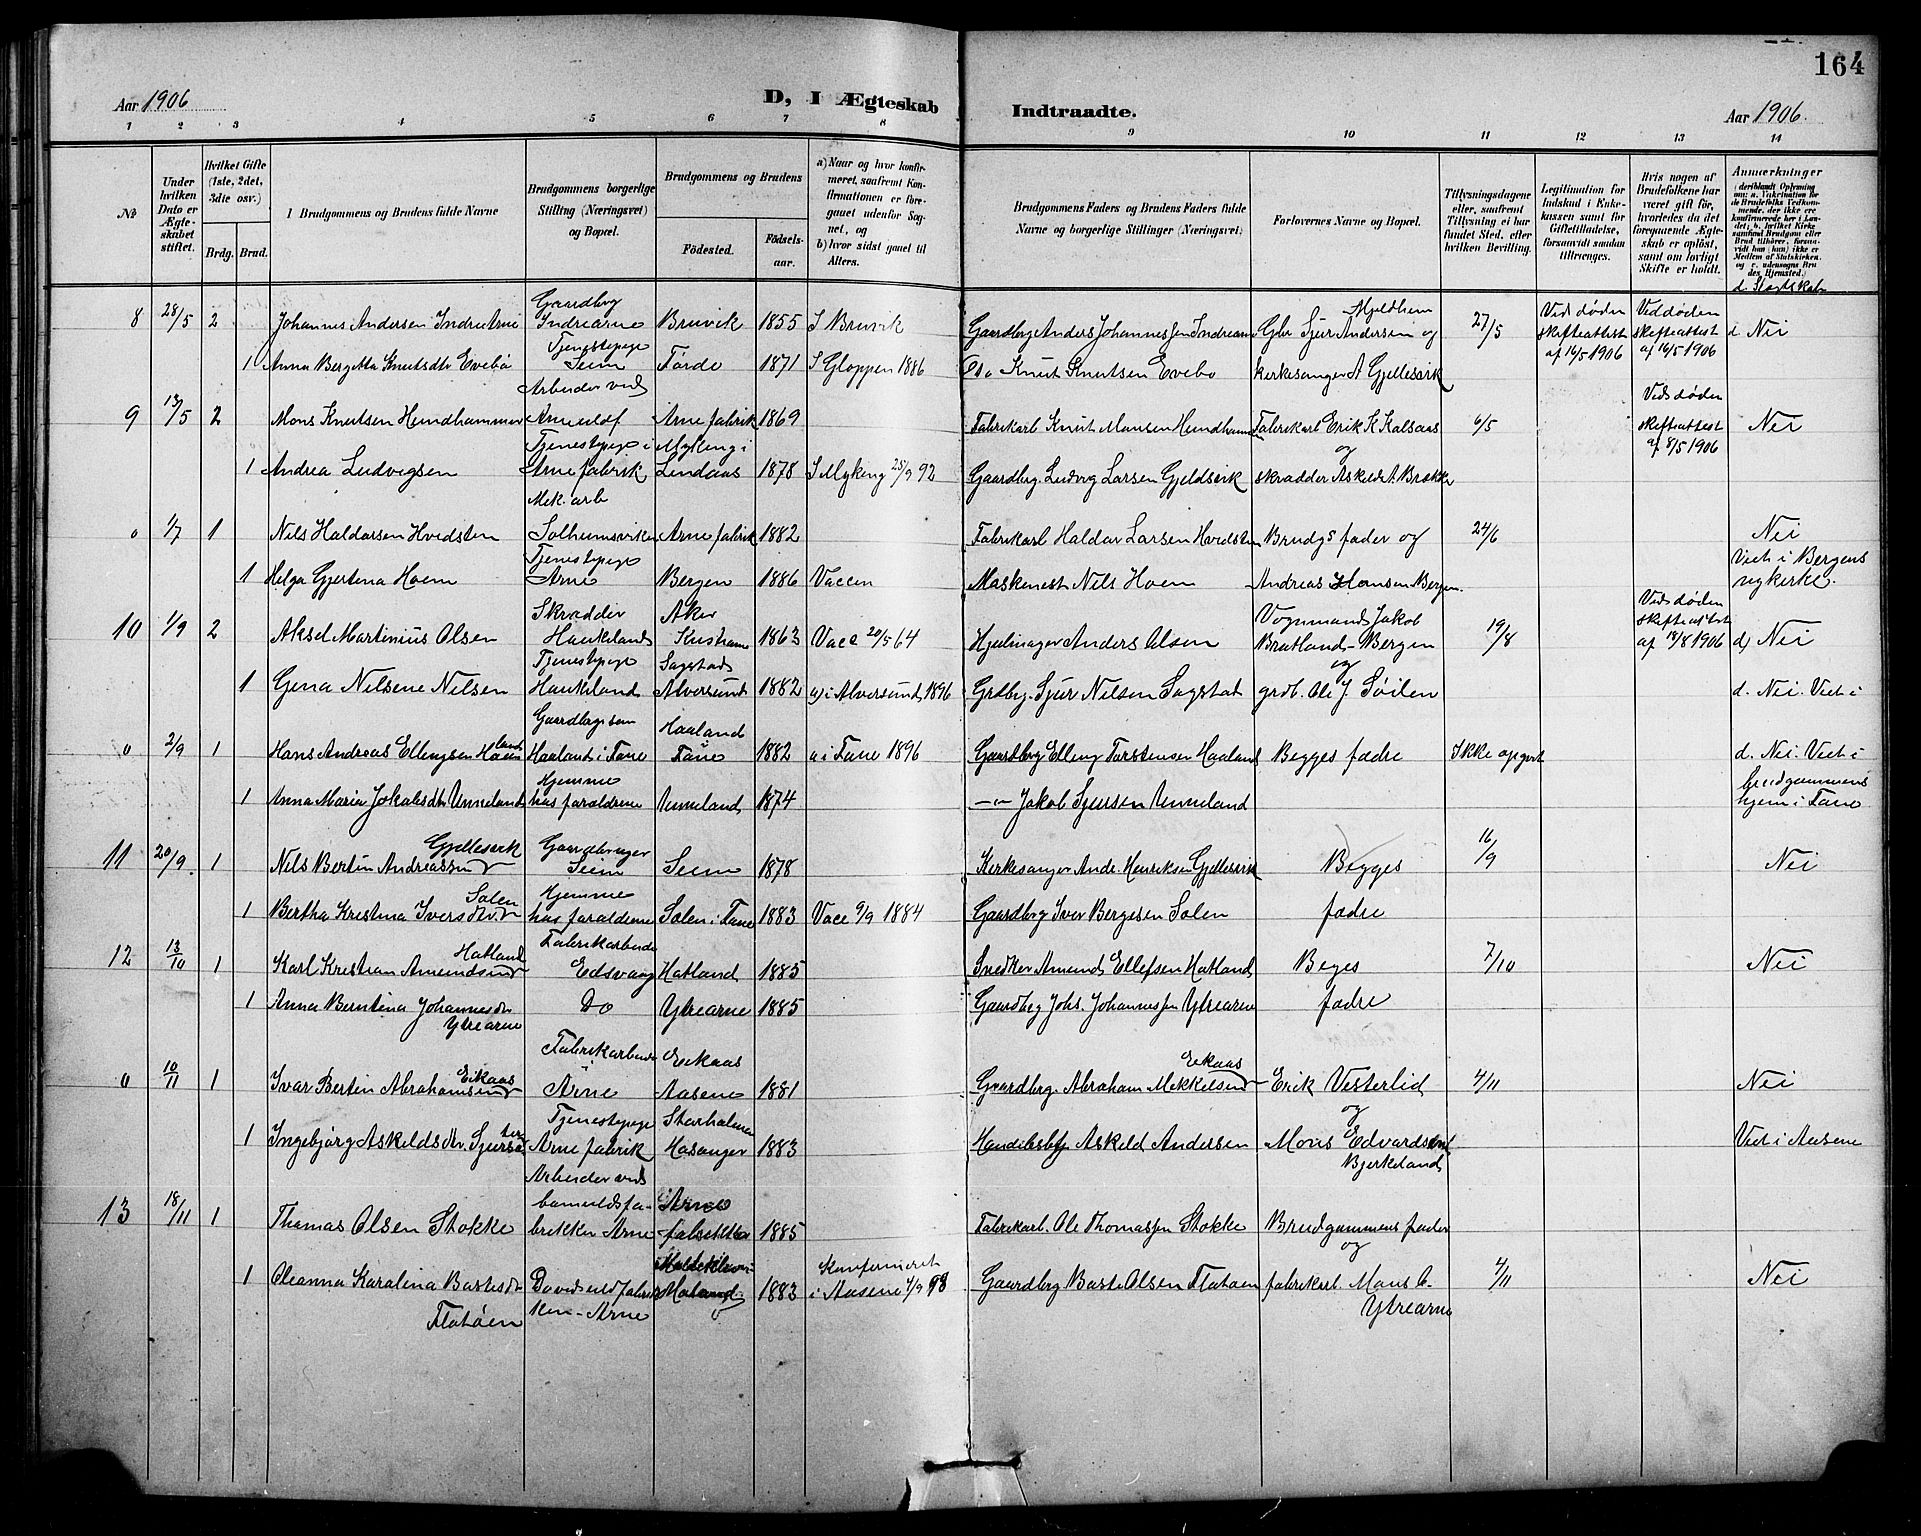 164
Aar 1906
D, I Ægteskab Indtraadte.
Aar 1906.
1 2 3 4 5 6 7 8 9 10 11 12 13 14
No
Under hvilken Dato er Ægteskabet stiftet.
Hvilket Gifte (1ste, 2det, 3die osv.)
Brdg. Brud.
Brudgommens og Brudens fulde Navne
Brudgommens borgerlige Stilling (Næringsvei) og Bopæl.
Brudgommens og Brudens
Fødested. Fødselsaar.
a) Naar og hvor konfirmeret, saafremt Konfirmationen er foregaaet udenfor Sognet, og
b) hvor sidst gaaet til Alters.
Brudgommens Faders og Brudens Faders fulde Navne og borgerlige Stillinger (Næringsvei)
Forlovernes Navne og Bopæl.
Tillysningsdagene eller, saafremt Tillysning ei har fundet Sted, efter hvilken Bevilling.
Legitimation for Indskud i Enkekassen samt for Giftetilladelse, forsaavidt saadan tiltrænges.
Hvis nogen af Brudefolkene har været gift før, hvorledes da det foregaaende Ægteskab er opløst, samt om lovligt Skifte er holdt.
Anmærkninger
d. Slegtskab
8 28/5 2 Johannes Andersen Indre Arne Gaardbrg Indrearne Bruvik 1855 I Bruvik Gaardbrg Anders Johannessen Indrearne Gbr Sjur Andersen Mjeldheim og 27/5 Ved døden skifteattest af 16/5 1906 Ved døden skifteattest af 16/5 1906 Nei
1 Anna Bergetta Knutsdtr Evebø Tjenestepige Seim Førde 1871 I Gloppen 1886 Do Knut Knutsen Evebø kirkesanger A Gjellesvik
9 13/5 2 Mons Knutsen Hundhammer Arbeider ved Arne Arne fabrik 1869 Fabrikarb Knut Monsen Hundhammer Fabrikarb Erik K Kalsaas og 6/5 Ved døden skifteattest af 8/5 1906 Nei
1 Andrea Ludvigsen Tjenestepige i Arne fabrik Myking i Lindaas 1878 I Myking 25/9 92 Gaardbrg. Ludvig Larsen Gjeldsvik skrædder Askild A. Brække
0 1/7 1 Nils Haldorsen Hvidsten Mek. arb Solheimsviken Arne fabrik 1882 Fabrikarb Haldor Larsen Hvidsten Brudgs fader og 24/6 Nei
1 Helga Gjertina Hoem Tjenestepige Arne Bergen 1886 Vaccin Maskinest Nils Hoem Andreas Hansen Bergen. Viet i Bergens nykirke.
10 1/9 2 Aksel Martinius Olsen Skrædder Haukeland Aker Kristiania 1863 Vacc 20/5 64 Hjulmager Anders Olsen Vognmand Jakob Bratland - Bergen og 19/8 Ved døden skifteattest af 18/8 1906 d) Nei
1 Gina Nilsene Nilsen Tjenestepige Haukeland Sagstad Alversund 1882 a) i Alversund 1896 Grdbrg. Sjur Nilsen Sagstat grdb. Ole J. Søilen d. Nei. Viet i
0 2/9 1 Hans Andreas Ellingsen Haaland Gaardbrgs søn Haaland i Fane Haaland Fane 1882 a i Fane 1896 Gaardbrg Elling Torstensen Haaland Begges fædre Ikke opgivet d. Nei. Viet i brudgommens hjem i Fane
1 Anna Maria Jakobsdtr Unneland Hjemme hos forældrene Unneland 1874 -"- Jakob Sjursen Unneland
11 20/9. 1 Nils Bertin Andreassen Gjellesvik Gaardbruger Seim Seim 1878 Kirkesanger Andr. Henriksen Gjellesvik Begges 16/9 Nei
1 Bertha Kristina Iversdtr. Solen Hjemme hos forældrene Solen i Fane 1883 Vacc 9/9 1884 Gaardbrg Iver Bergesen Solen fædre
12 13/10 1 Karl Kristian Amundsen Hatland Fabrikarbeider Edsvaag Hatland 1885 Snedker Amund Ellefsen Hatland Beges 7/10 Nei
1 Anna Berntina Johannesdtr Ytrearne Do Ytrearne 1885 Gaardbrg Johs. Johannessen Ytrearne fædre
0 10/11 1 Ivar Bertin Abrahamsen Eikaas Fabrikarbeider Arne Eikaas Aasene 1881 Gaardbrg. Abraham Mikkelsen Eikaas Erik Vesterlid og 4/11 Nei
1 Ingebjørg Askildsdtr. Tjenestepige Arne fabrik Hosanger 1883 Askild Andersen Mons Edvardsen Bjerkeland Viet i Aasene
13 18/11 1 Thomas Olsen Stokke Arbeider ved bomuldsfabrikken Arne Arne fabrikker 1885 Fabrikarb. Ole Thomassen Stokke Brudgommens fader og 4/11 Nei
1 Oleanna Karolina Bastesdtr Flatøen Do ved uldfabrikken - Arne 1883 Konfirmeret i Aasene 4/9 98 Gaardbrg Baste Olsen Flatøen fabrikarb. Mons O. Ytrearne